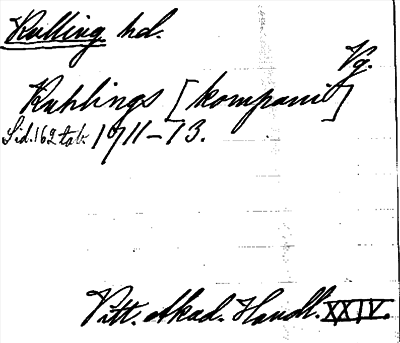 Kulling hd.
Vg.
Kuhlings [kompani]
Sid. 162 tab 1711–13.
Vitt. Akad. Handl. XXIV.